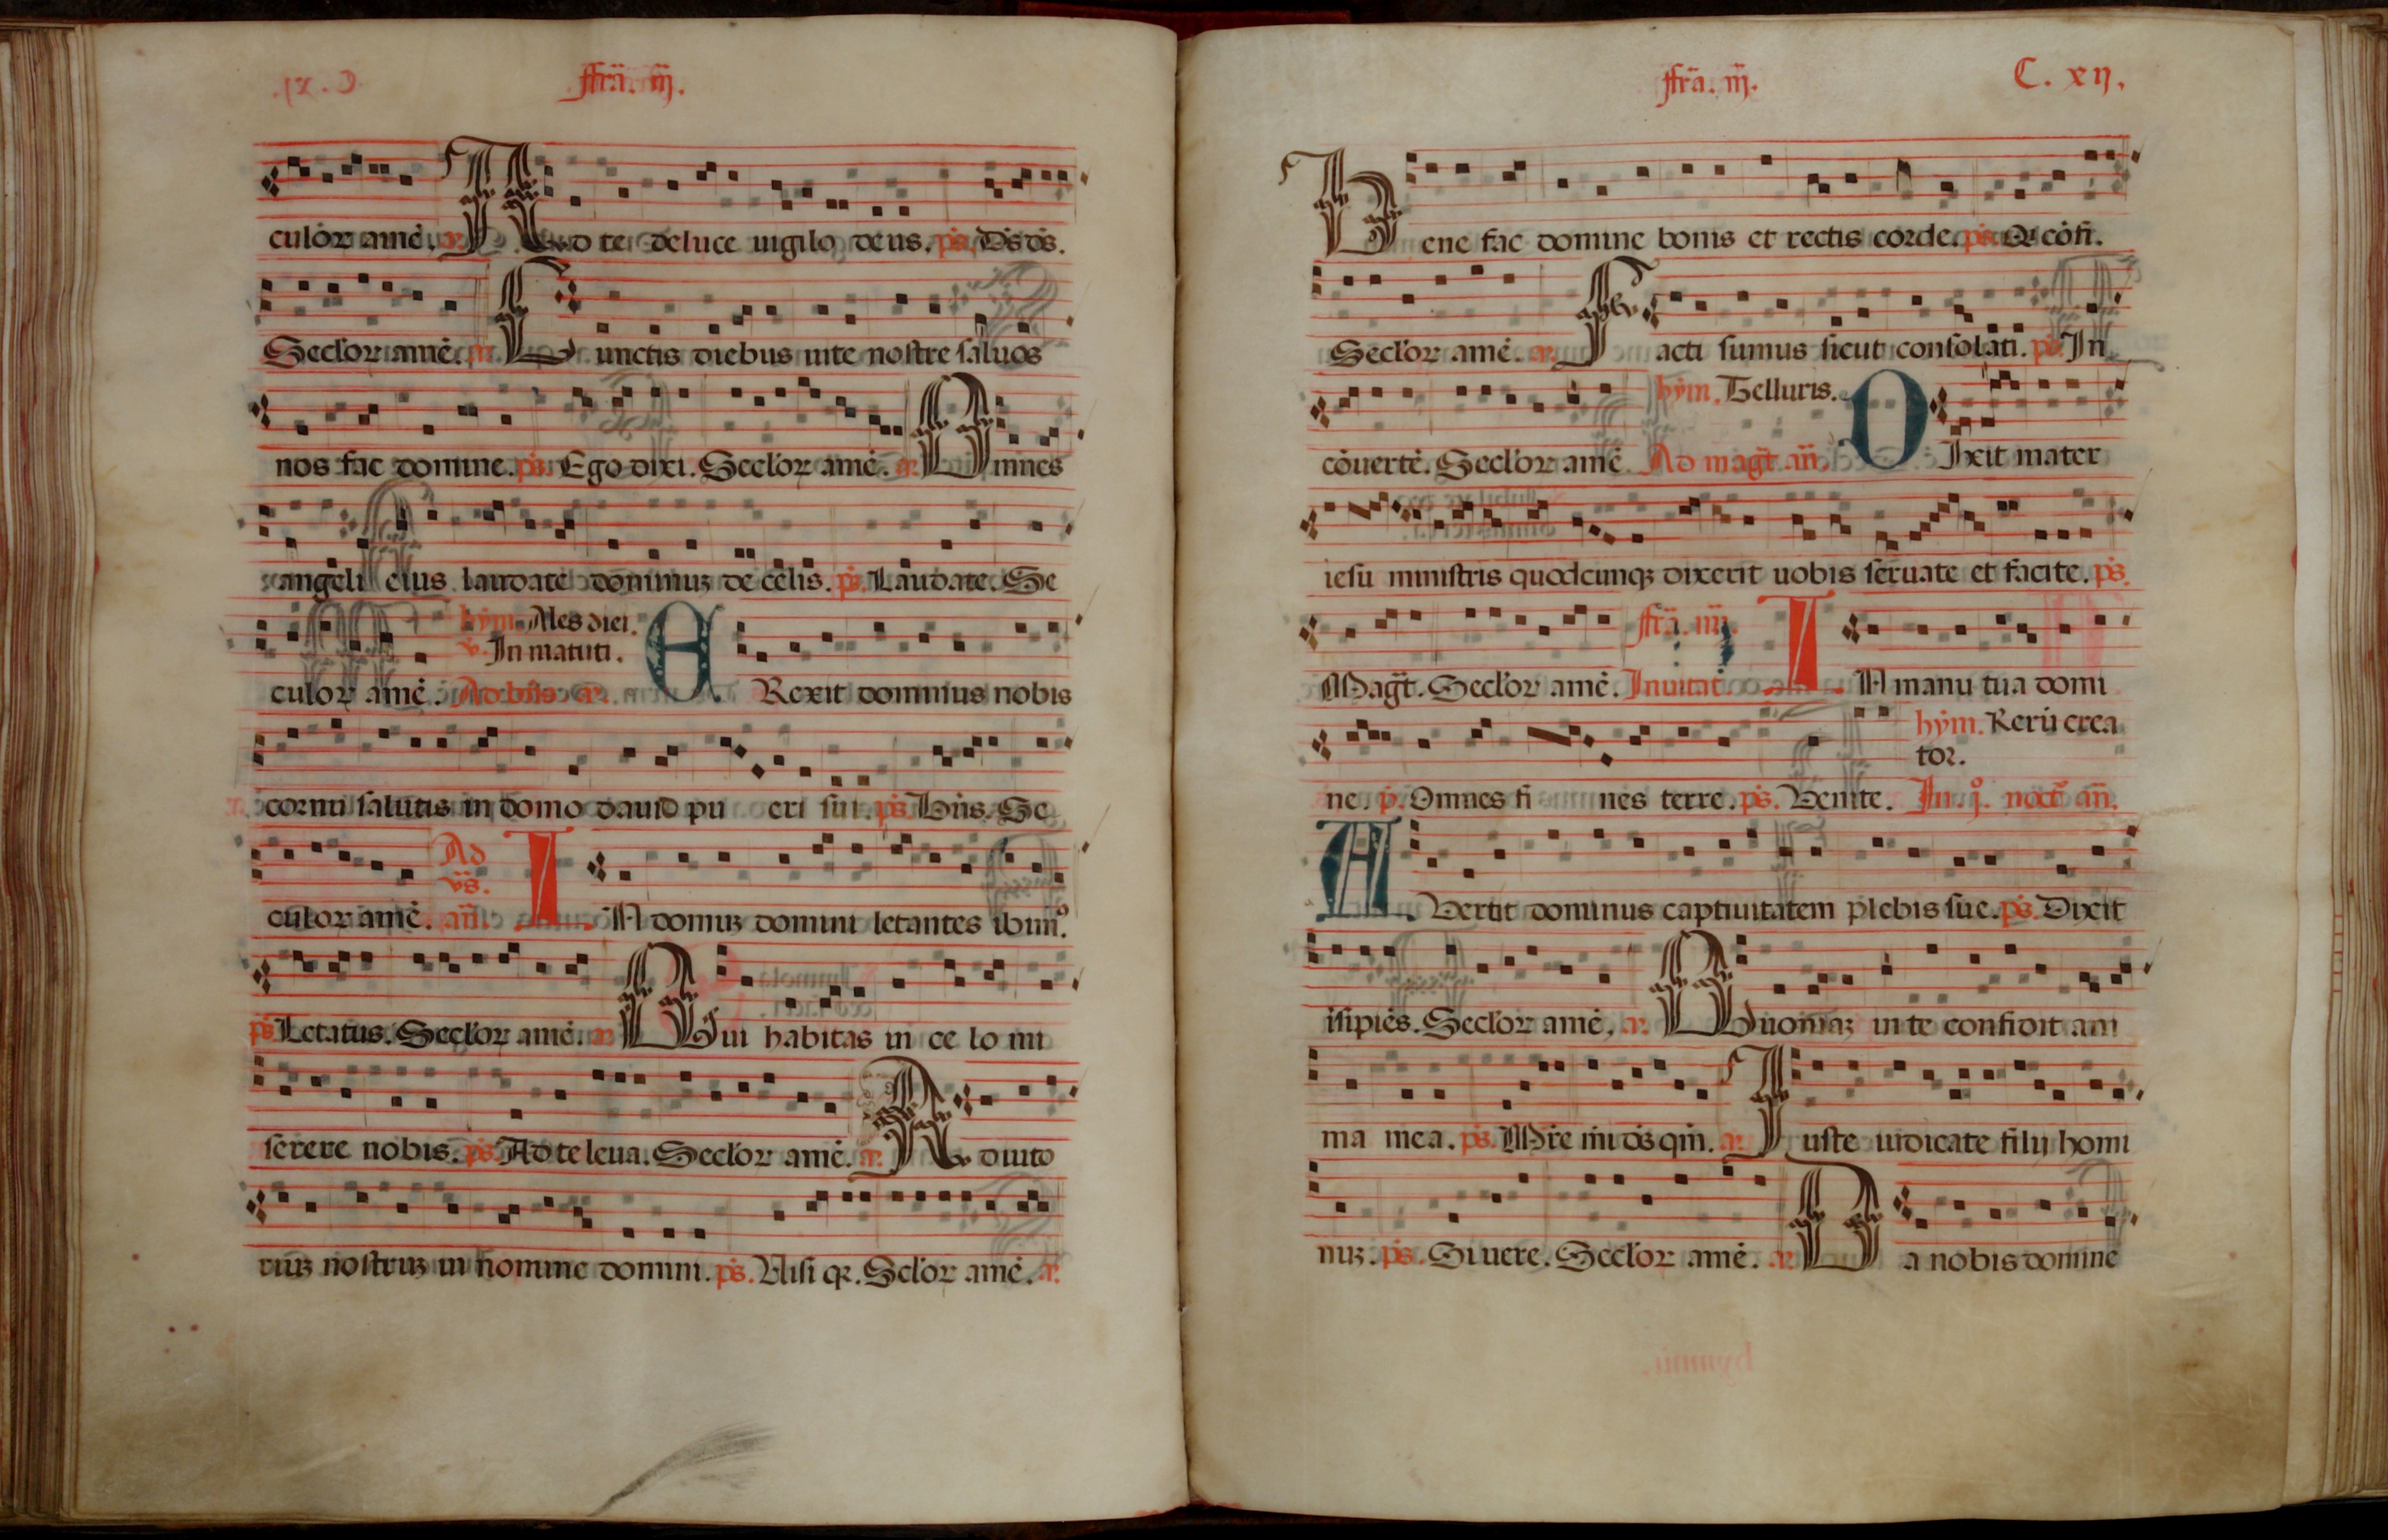 ffrã. iij.
culoꝝ amė. aꝰ. Ad te de luce uigilo deus. ps̄. Ds̄ ds̄.
Secl'oꝝ amē. aꝰ. Cunctis diebus uite nostre saluos
nos fac domine. ps̄. Ego dixi. Secl'oꝝ amē. aꝰ. Omnes
angeli eius laudate dominuꝫ de celis. ps̄. Laudate. Se
hȳm. Ales diei.
v. In matuti.
culoꝝ amē. Ad bn̄s. aꝰ. ERexit dominus nobis
cornu salutis in domo dauid pu eri sui. ps̄. Bn̄s. Se
Ad
vs̄.
culoꝝ amē. an̄. IN domuꝫ domini letantes ibim⁹.
ps̄ Letatus. Secl'oꝝ amē. aꝰ. Qui habitas in ce lo mi
serere nobis. ps̄. Ad te leua. Secl'oꝝ amē. aꝰ. Adiuto
riuꝫ nostruꝫ in nomine domini. ps̄. Nisi qꝛ. Scl'oꝝ amē. aꝰ.
ffrã. iij. C. xij.
Bene fac domine bonis et rectis corde. ps̄. Q̇ cōfi.
Secl'oꝝ amē. aꝰ. Facti sumus sicut consolati. ps̄. In
hȳm. Telluris.
cōuertē. Secl'oꝝ amē Ad magt̄. an̄. DIxit mater
iesu ministris quodcunqꝫ dixerit uobis seruate et facite. ps̄.
ffrã. iiij.
Magt̄. Secl'oꝝ amē. Inuitat̄. IN manu tua domi
hȳm. Rerū crea
tor.
ne. p̄. Omnes fi nes terre. ps̄. Venite. In. j⁰. noct̄⁰ an̄.
AVertit dominus captiuitatem plebis sue. ps̄. Dixit
isipiēs. Secl'oꝝ amē. aꝰ. Quoniaꝫ in te confidit ani
ma mea. ps̄. Mr̄e mi ds̄ qm̄. aꝰ. Iuste iudicate filij homi
nuꝫ. ps̄. Si uere. Secl'oꝝ amē. aꝰ. Da nobis domine